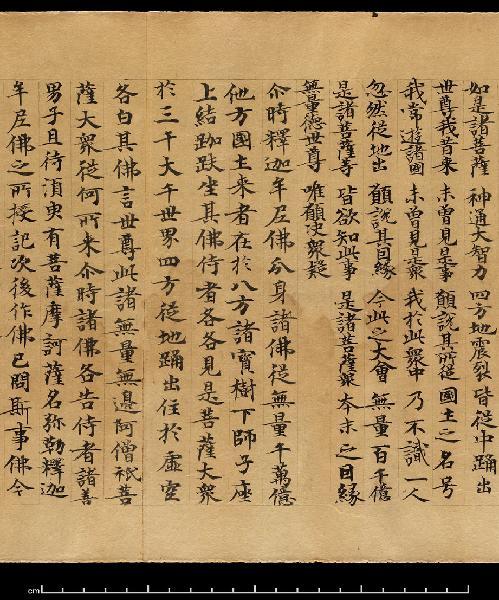 如是諸菩薩 神通大智力 四方地震裂 皆從中踊出
世尊我昔来 未曾見是事 願說其所從 國土之名号
我常遊諸國 未曾見是衆 我於此衆中 乃不識一人
忽然從地出 願說其因緣 今此之大會 無量百千億
是諸菩薩等 皆欲知此事 是諸菩薩衆 本末之因緣
無量德世尊 唯願決衆疑
尒時釋迦牟尼佛分身諸佛從無量千萬億
他方國土来者在於八方諸寶樹下師子座
上結跏趺坐其佛侍者各各見是菩薩大衆
於三千大千世界四方從地踊出住於虛空
各白其佛言世尊此諸無量無邊阿僧祇菩
薩大衆從何所来尒時諸佛各告侍者諸善
男子且待湏臾有菩薩摩訶薩名弥勒釋迦
牟尼佛之所授記次後作佛已問斯事佛今
cm